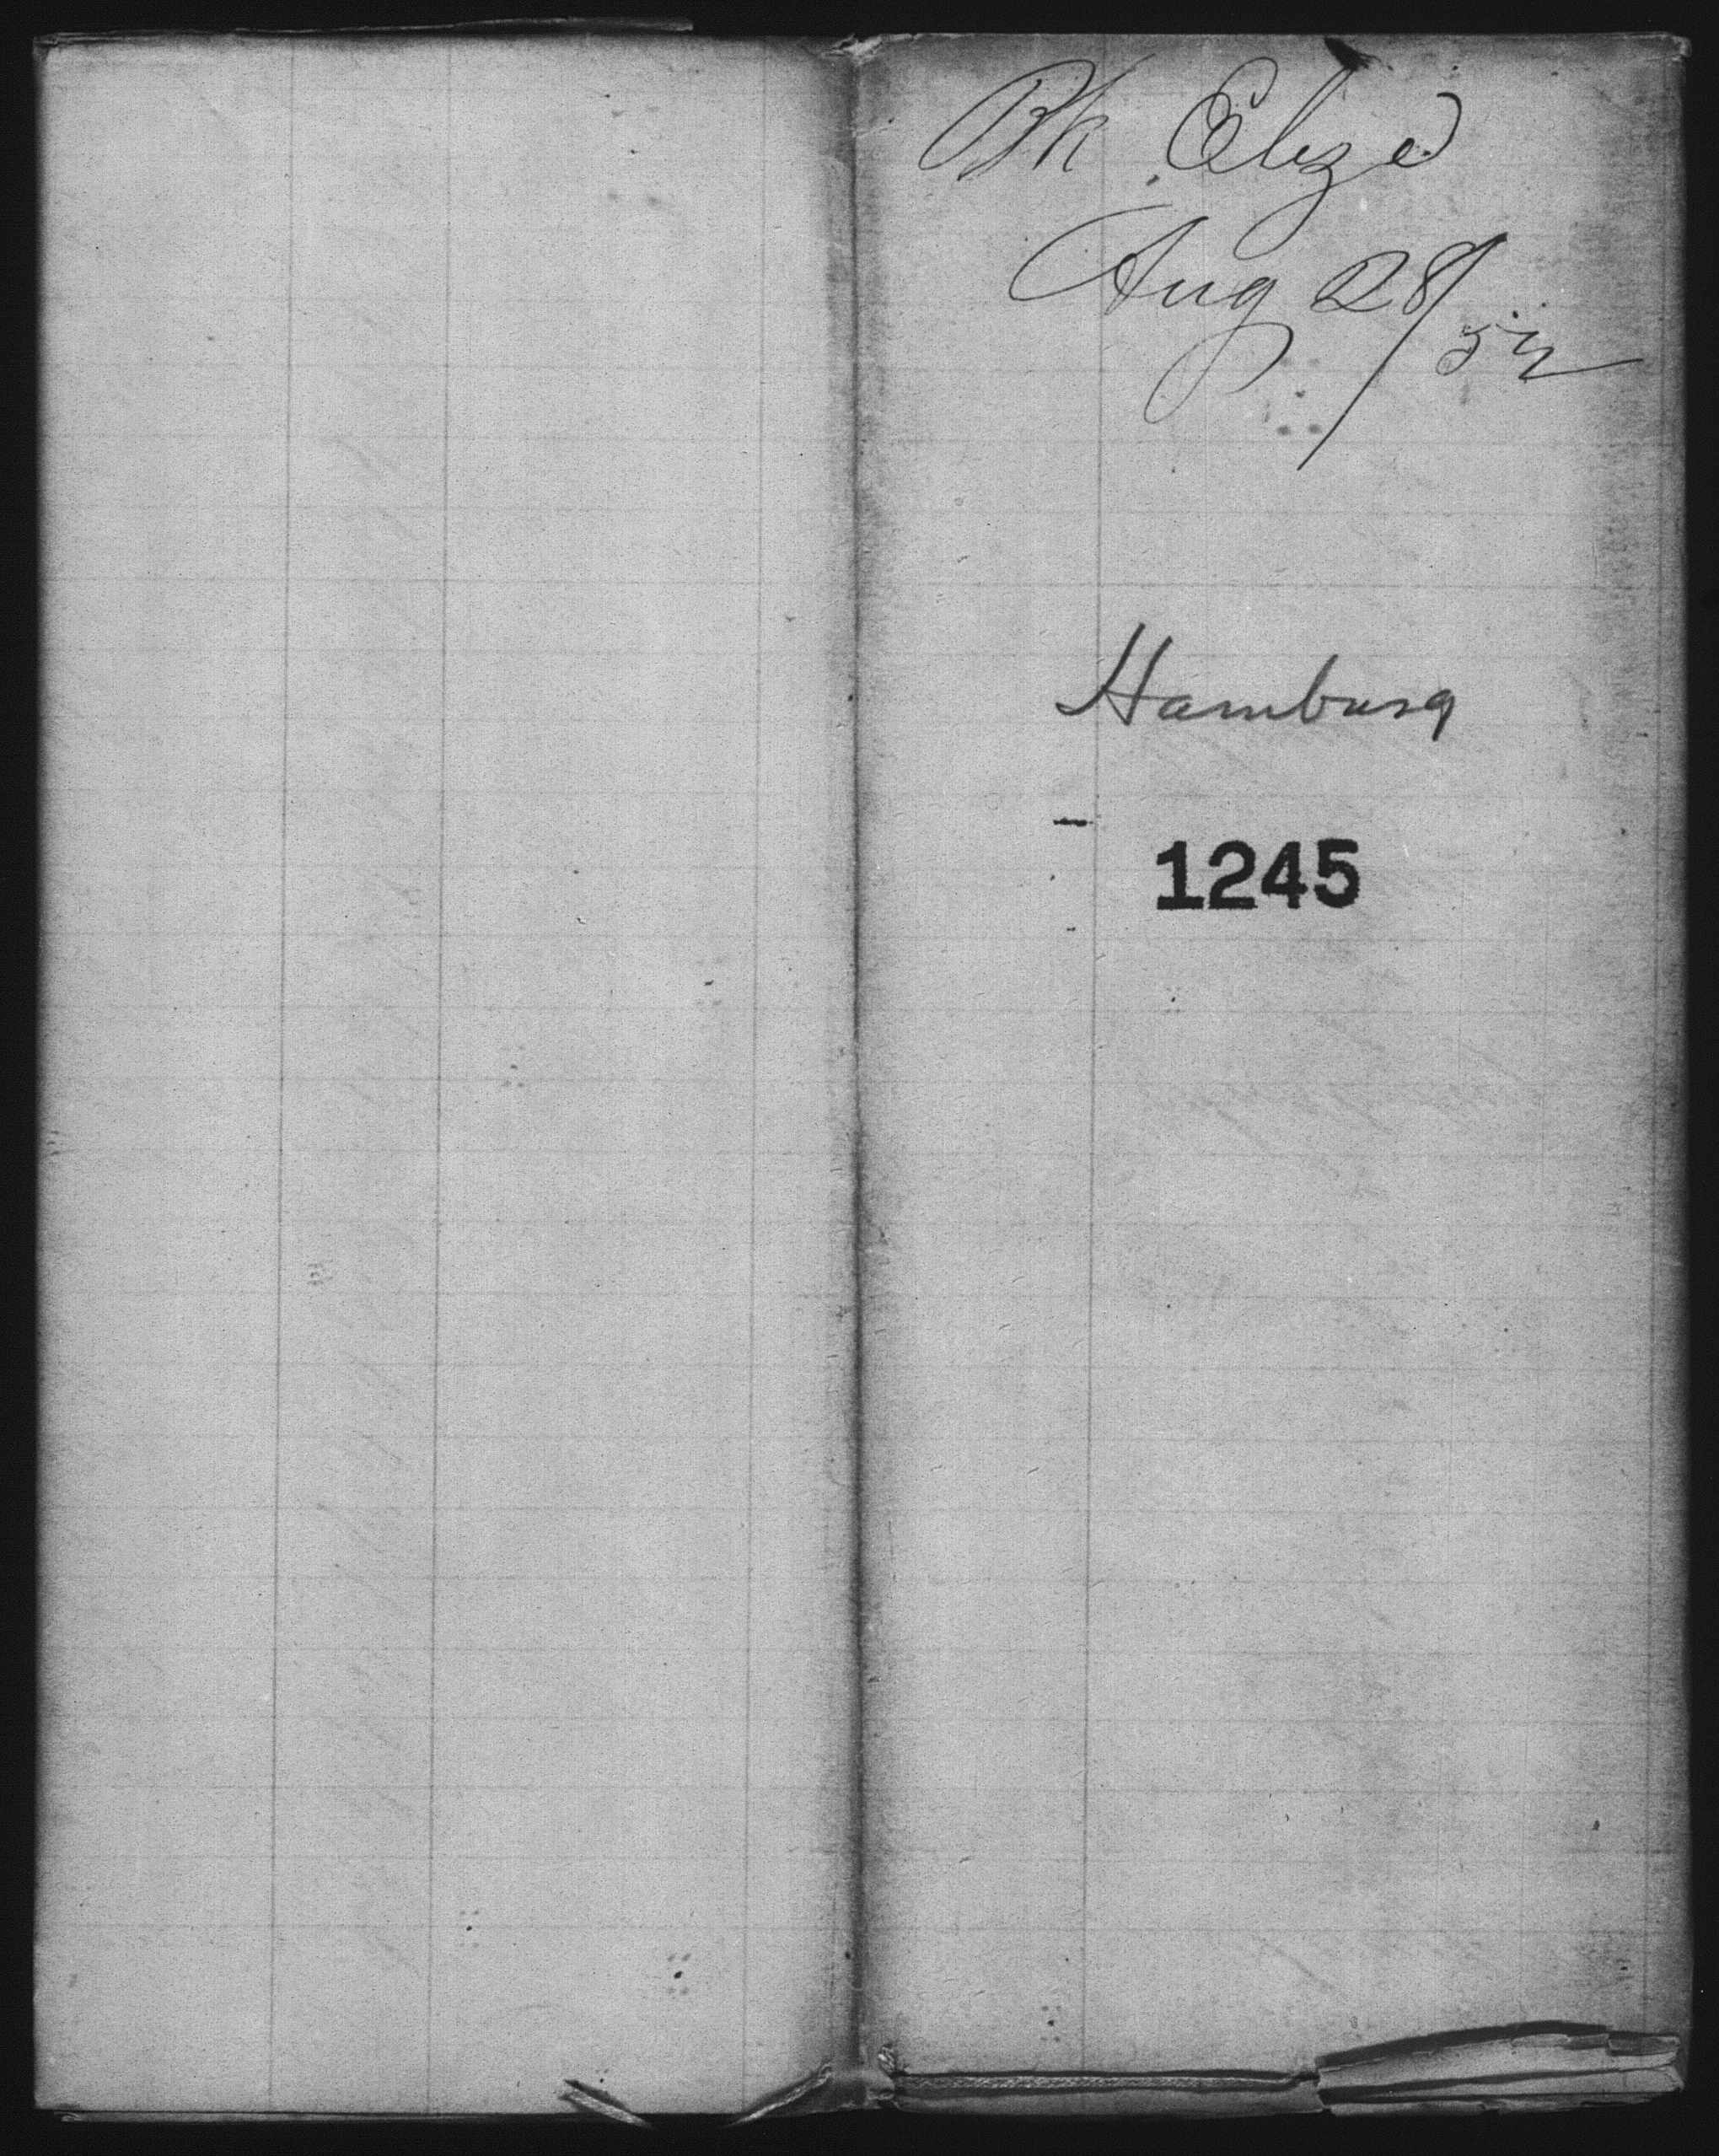 Bk Elize
Aug 28/52
Hamburg
1245